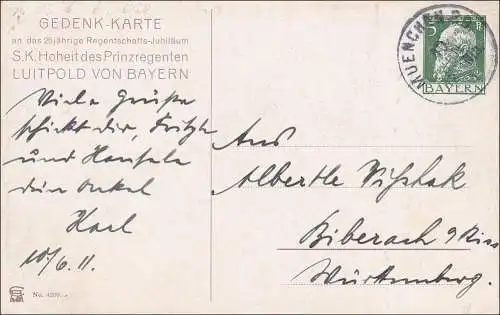 GEDENK-KARTE
an das 25jährige Regentschafts-Jubiläum
S.K. Hoheit des Prinzregenten
LUITPOLD VON BAYERN
Viele Grüße
schickt dir, Fritzle
und Hansele
dein Onkel
Karl
10/6.11.
No.
MUENCHEN
5
BAYERN
An
Albertle
Biberach a/Riss
Württemberg.